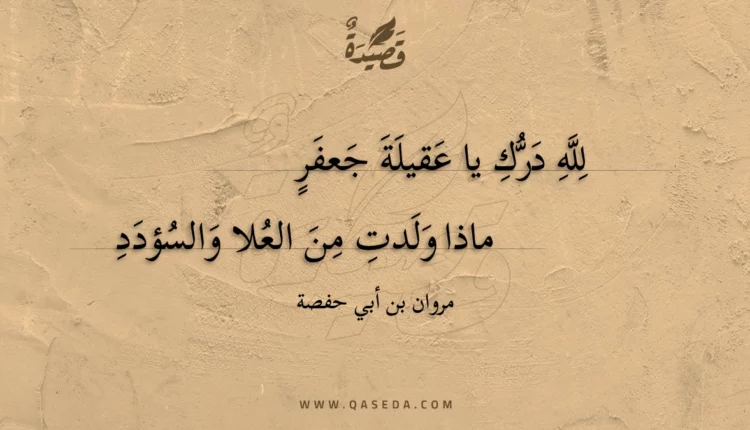 قَصِيْدَةٌ
لِلَّهِ دَرُّكِ يا عَقيلَةَ جَعفَرٍ
ماذا وَلَدتِ مِنَ العُلا وَالسُؤدَدِ
مروان بن أبي حفصة
WWW.QASEDA.COM